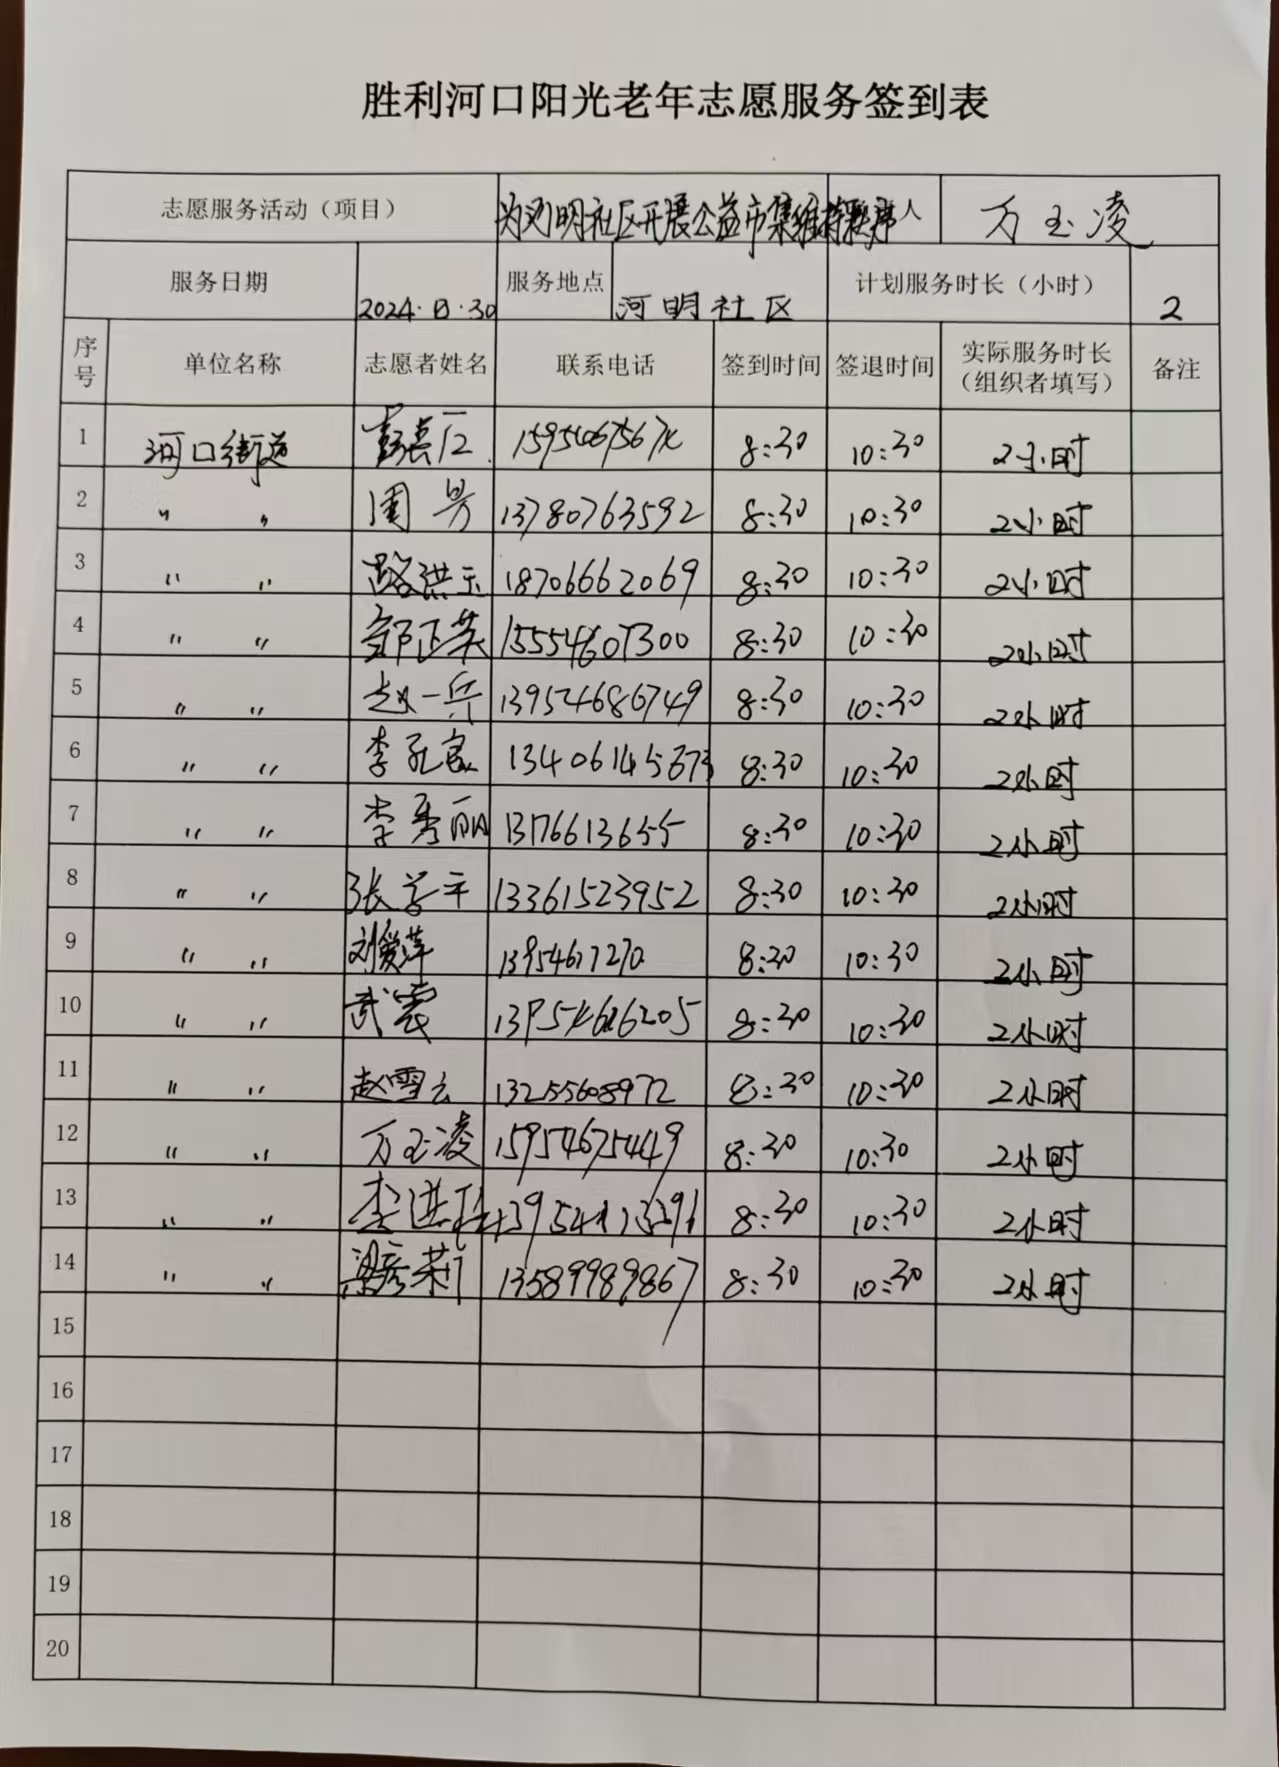 胜利河口阳光老年志愿服务签到表
志愿服务活动（项目） 为河明社区开展公益市集维持秩序 人 万玉凌
服务日期 2024. .30 服务地点 河明社区 计划服务时长（小时） 2
序号 单位名称 志愿者姓名 联系电话 签到时间 签退时间 实际服务时长（组织者填写） 备注
1 河口街道 8:30 10:30 2小时
2 〃 〃 周 13780763592 8:30 10:30 2小时
3 〃 〃 路洪玉 18706662069 8:30 10:30 2小时
4 〃 〃 邹正英 15554607300 8:30 10:30 2小时
5 〃 〃 赵一兵 13954686749 8:30 10:30 2小时
6 〃 〃 李 8:30 10:30 2小时
7 〃 〃 李秀丽 13176613655 8:30 10:30 2小时
8 〃 〃 张学平 13361523952 8:30 10:30 2小时
9 〃 〃 刘爱萍 8:30 10:30 2小时
10 〃 〃 武震 13954616205 8:30 10:30 2小时
11 〃 〃 赵雪云 13255608972 8:30 10:30 2小时
12 〃 〃 万玉凌 15954675449 8:30 10:30 2小时
13 〃 〃 李进 8:30 10:30 2小时
14 〃 〃 梁彦莉 13589989867 8:30 10:30 2小时
15
16
17
18
19
20